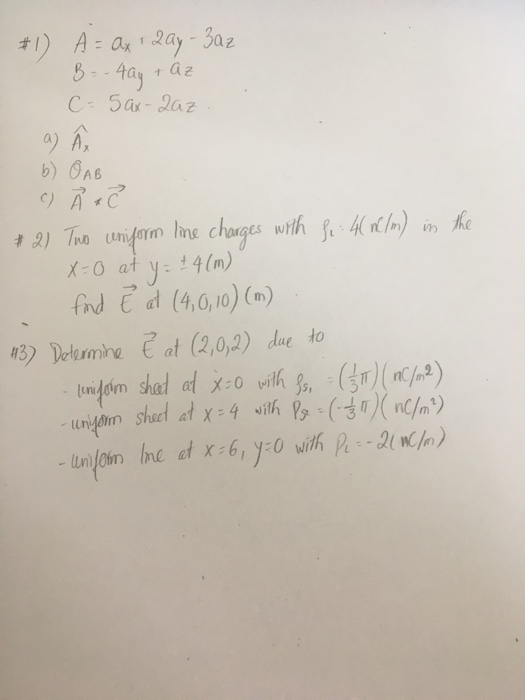 #1) A = ax + 2ay - 3az
B = - 4ay + az
C = 5ax - 2az
a) Âx
b) θAB
c) A⃗ * C⃗
#2) Two uniform line charges with ρL = 4(nC/m) in the
x=0 at y= ±4(m)
find E⃗ at (4,0,10)(m)
#3) Determine E⃗ at (2,0,2) due to
- uniform sheet at x=0 with ρs1 = (1/3π)(nC/m²)
- uniform sheet at x=4 with Ps2 = (-1/3π)(nC/m²)
- uniform line at x=6, y=0 with PL = -2(nC/m)